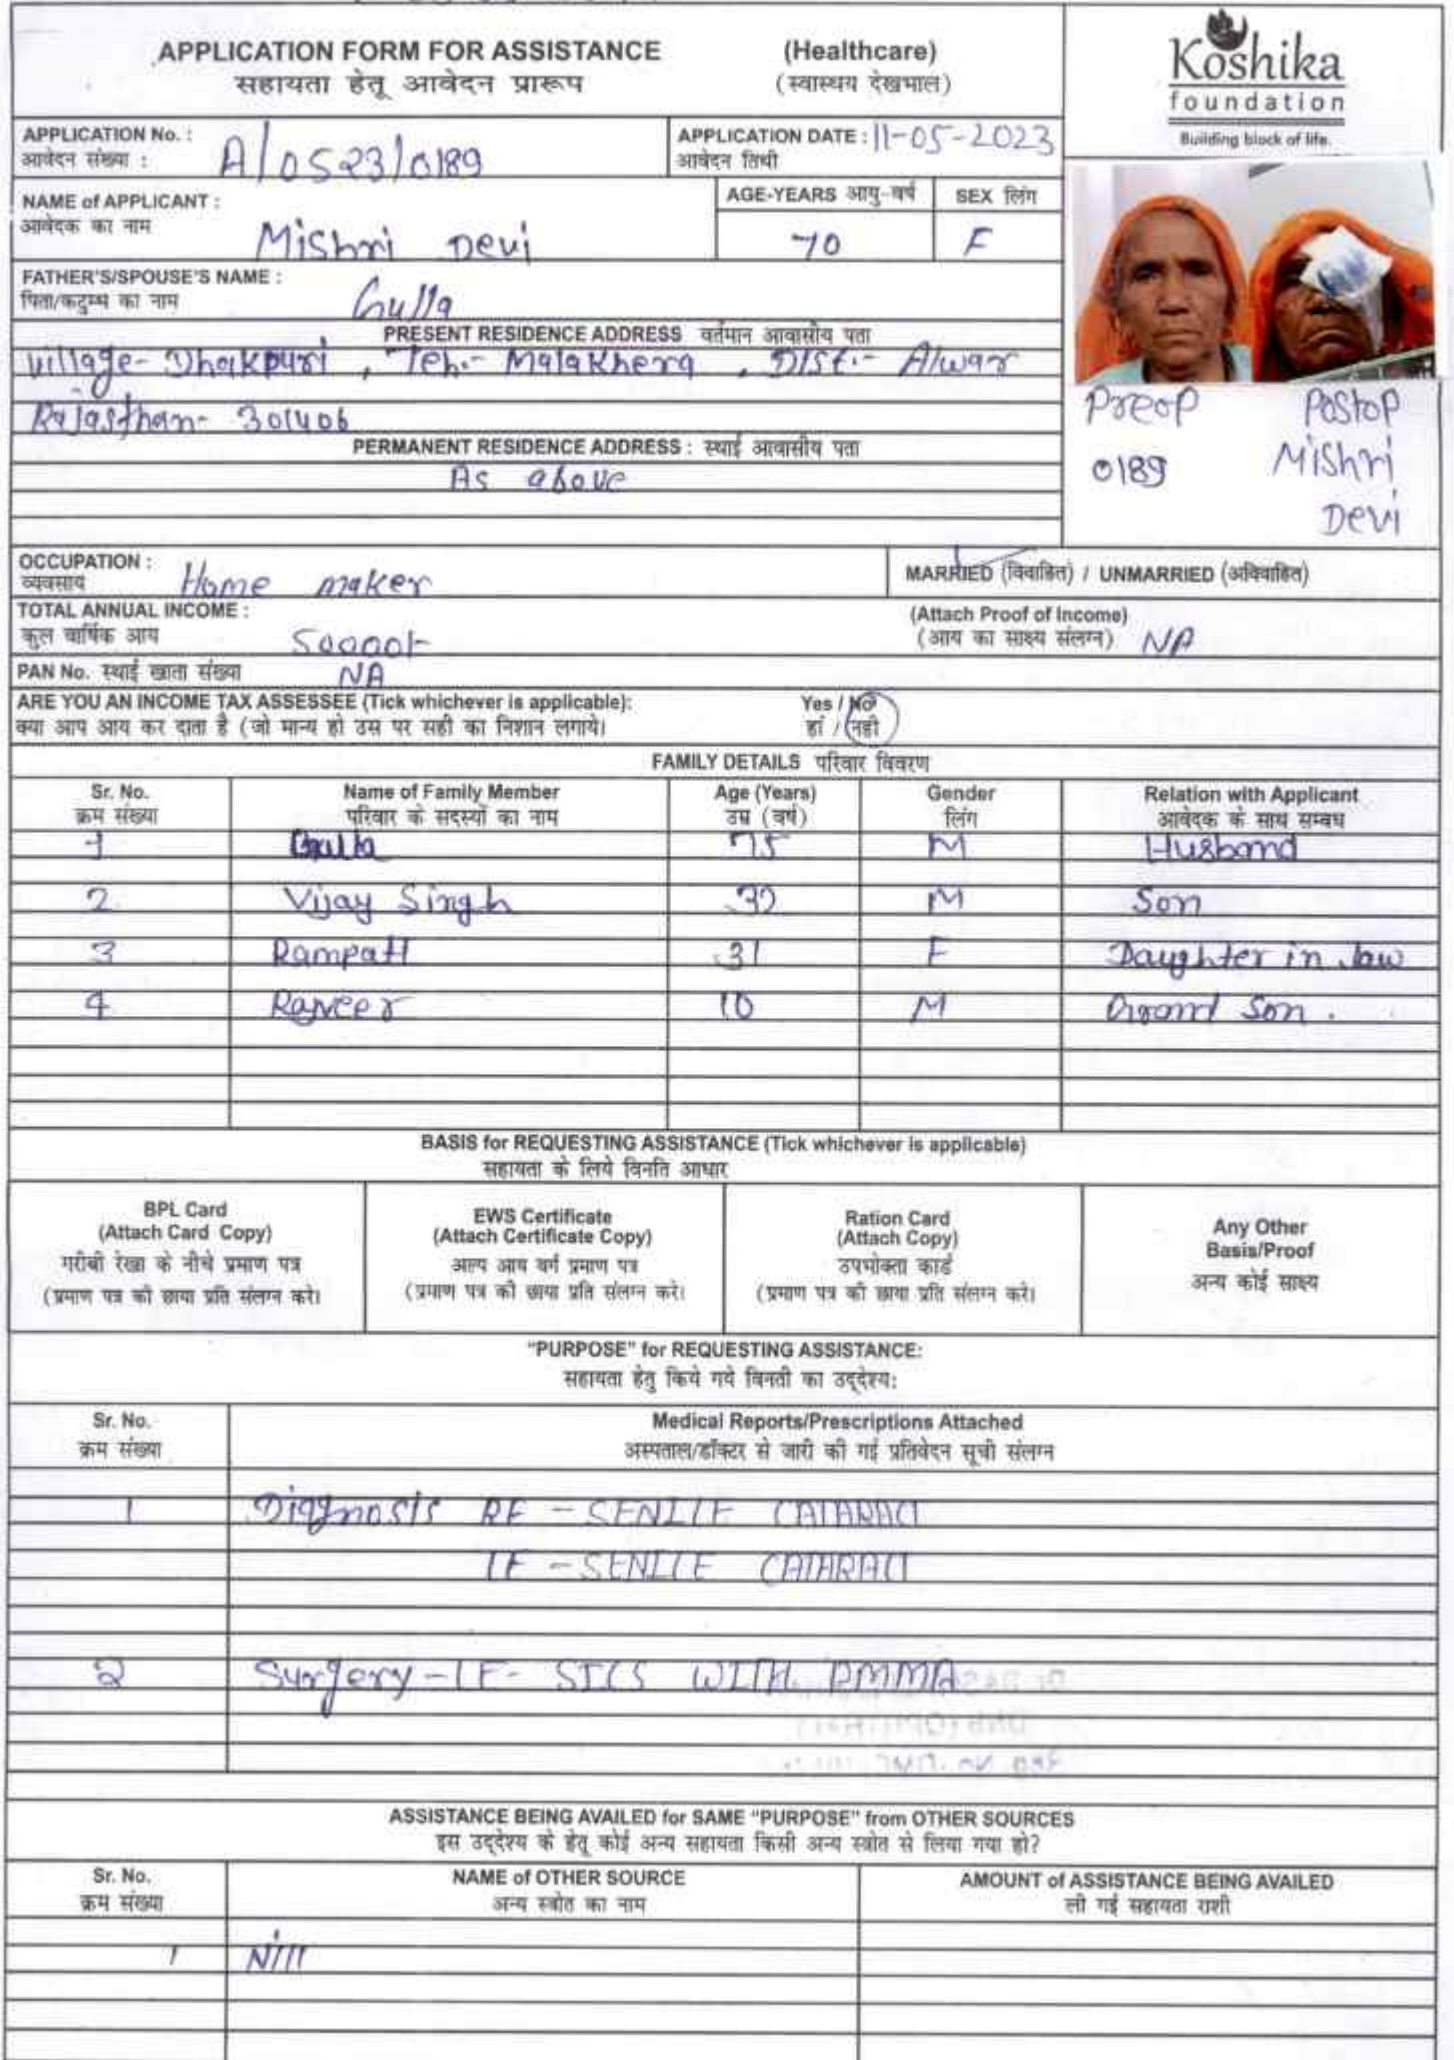 APPLICATION FORM FOR ASSISTANCE (Healthcare)
सहायता हेतू आवेदन प्रारूप (स्वास्थय देखभाल)
Koshika
foundation
Building block of life.
APPLICATION No. : A/0523/0189 APPLICATION DATE : 11-05-2023
आवेदन संख्या : आवेदन तिथी
NAME of APPLICANT : AGE-YEARS आयु-वर्ष SEX लिंग
आवेदक का नाम Mishri Devi 70 F
FATHER'S/SPOUSE'S NAME :
पिता/कटुम्ब का नाम Gulla
PRESENT RESIDENCE ADDRESS वर्तमान आवासीय पता
Village- Dhakpuri , Teh.- Malakhera , Dist.- Alwar
Rajasthan- 301406
Preop Postop
0189 Mishri
Devi
PERMANENT RESIDENCE ADDRESS : स्थाई आवासीय पता
As above
OCCUPATION :
व्यवसाय Home maker MARRIED (विवाहित) / UNMARRIED (अविवाहित)
TOTAL ANNUAL INCOME : (Attach Proof of Income)
कुल वार्षिक आय 50000/- (आय का साक्ष्य संलग्न) NA
PAN No. स्थाई खाता संख्या NA
ARE YOU AN INCOME TAX ASSESSEE (Tick whichever is applicable): Yes / No
क्या आप आय कर दाता है (जो मान्य हो उस पर सही का निशान लगाये। हां / नही
FAMILY DETAILS परिवार विवरण
Sr. No. Name of Family Member Age (Years) Gender Relation with Applicant
क्रम संख्या परिवार के सदस्यों का नाम उम्र (वर्ष) लिंग आवेदक के साथ सम्बध
1 Gulla 75 M Husband
2 Vijay Singh 32 M Son
3 Rampati 31 F Daughter in law
4 10 M Grand Son .
BASIS for REQUESTING ASSISTANCE (Tick whichever is applicable)
सहायता के लिये विनति आधार
BPL Card
(Attach Card Copy)
गरीबी रेखा के नीचे प्रमाण पत्र
(प्रमाण पत्र की छाया प्रति संलग्न करे।
EWS Certificate
(Attach Certificate Copy)
अल्प आय वर्ग प्रमाण पत्र
(प्रमाण पत्र की छाया प्रति संलग्न करे।
Ration Card
(Attach Copy)
उपभोक्ता कार्ड
(प्रमाण पत्र की छाया प्रति संलग्न करे।
Any Other
Basis/Proof
अन्य कोई साक्ष्य
"PURPOSE" for REQUESTING ASSISTANCE:
सहायता हेतु किये गये विनती का उद्देश्य:
Sr. No. Medical Reports/Prescriptions Attached
क्रम संख्या अस्पताल/डॉक्टर से जारी की गई प्रतिवेदन सूची संलग्न
1 Diagnosis RE - SENILE CATARACT
LE - SENILE CATARACT
2 Surgery - LE - SICS WITH PMMA
ASSISTANCE BEING AVAILED for SAME "PURPOSE" from OTHER SOURCES
इस उद्देश्य के हेतू कोई अन्य सहायता किसी अन्य स्त्रोत से लिया गया हो?
Sr. No. NAME of OTHER SOURCE AMOUNT of ASSISTANCE BEING AVAILED
क्रम संख्या अन्य स्त्रोत का नाम ली गई सहायता राशी
1 Nill